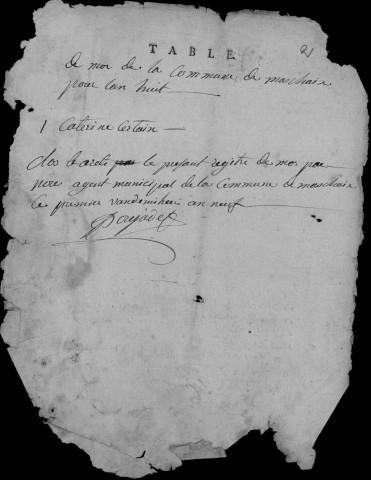 TABLE
2
de mor de la Commune de maschaix
pour lan huit
1 Caterine Certain
clos et areté le present registre de mor par
nous agent municipal de la Commune de maschaix
le premier vandemiere an neuf